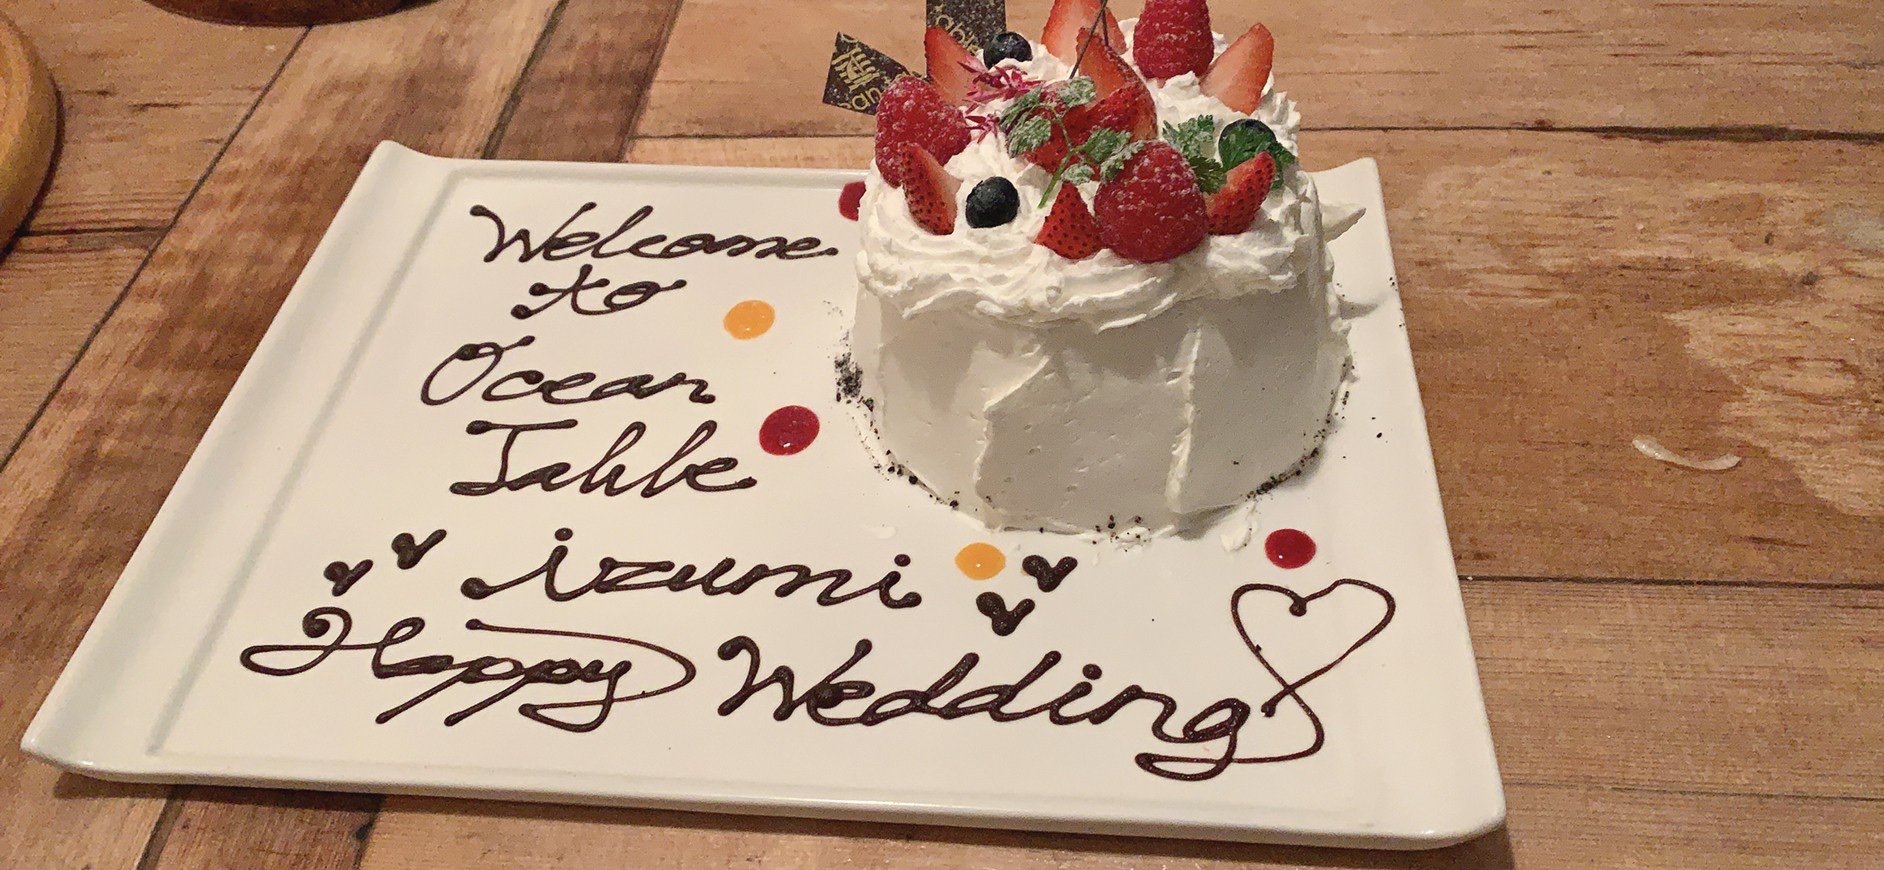 Welcome
to
Ocean
Table
izumi
Happy Wedding